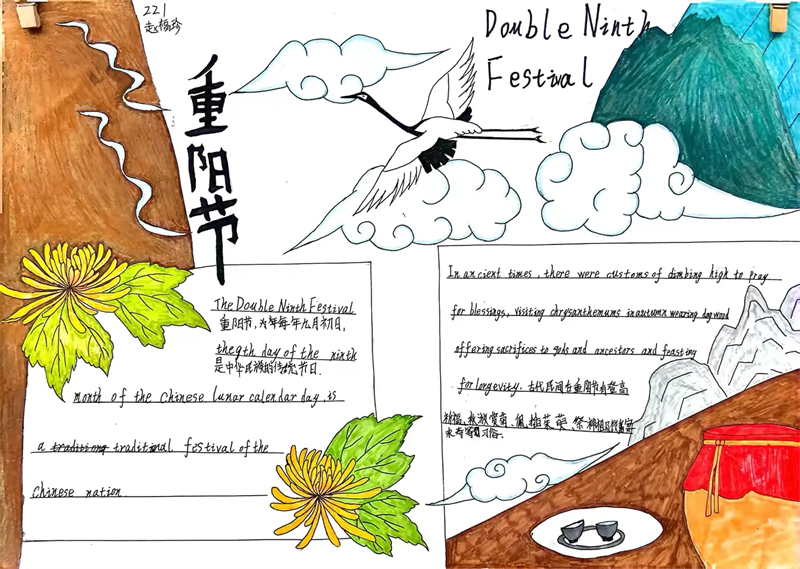 221
赵福珍
重阳节
Double Ninth
Festival
The Double Ninth Festival
重阳节,为每年九月初九日,
the 9th day of the ninth
是中华民族的传统节日.
month of the Chinese lunar calendar day, is
a traditional festival of the
Chinese nation.
In ancient times, there were customs of climbing high to pray
for blessings, visiting chrysanthemums in autumn wearing dogwood
offering sacrifices to gods and ancestors and feasting
for longevity. 古代民间在重阳节有登高
祈福、秋游赏菊、佩插茱萸、祭
求寿等习俗.